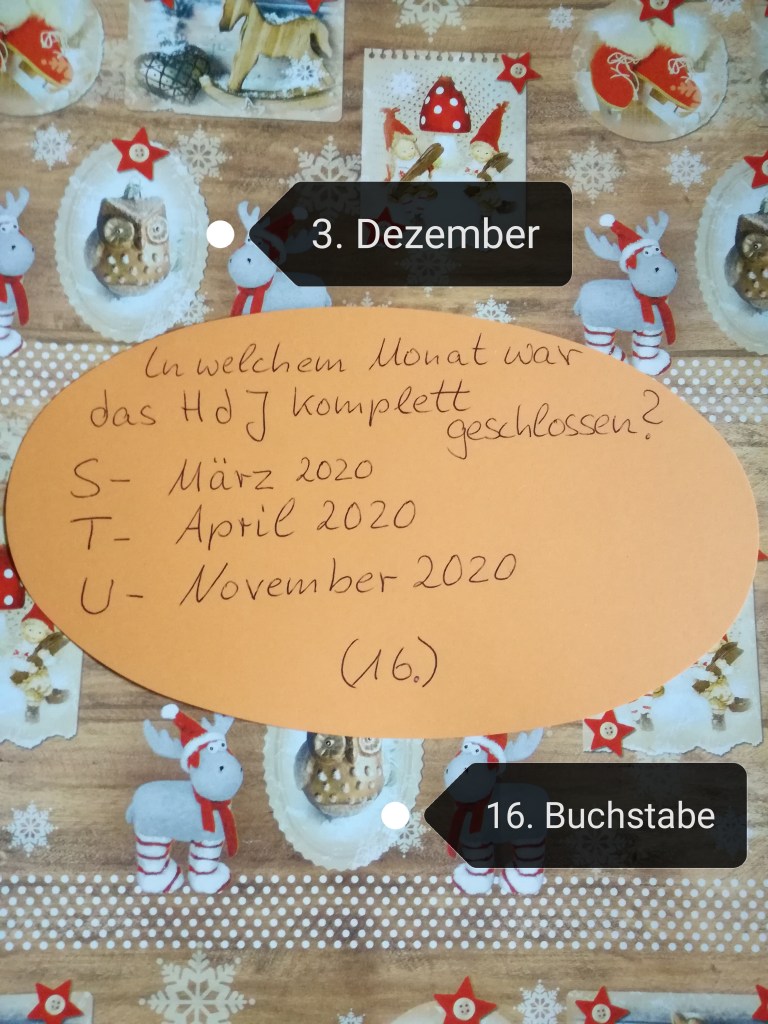 3. Dezember
In welchem Monat war
das HdJ komplett
geschlossen?
S- März 2020
T- April 2020
U- November 2020
(16.)
16. Buchstabe